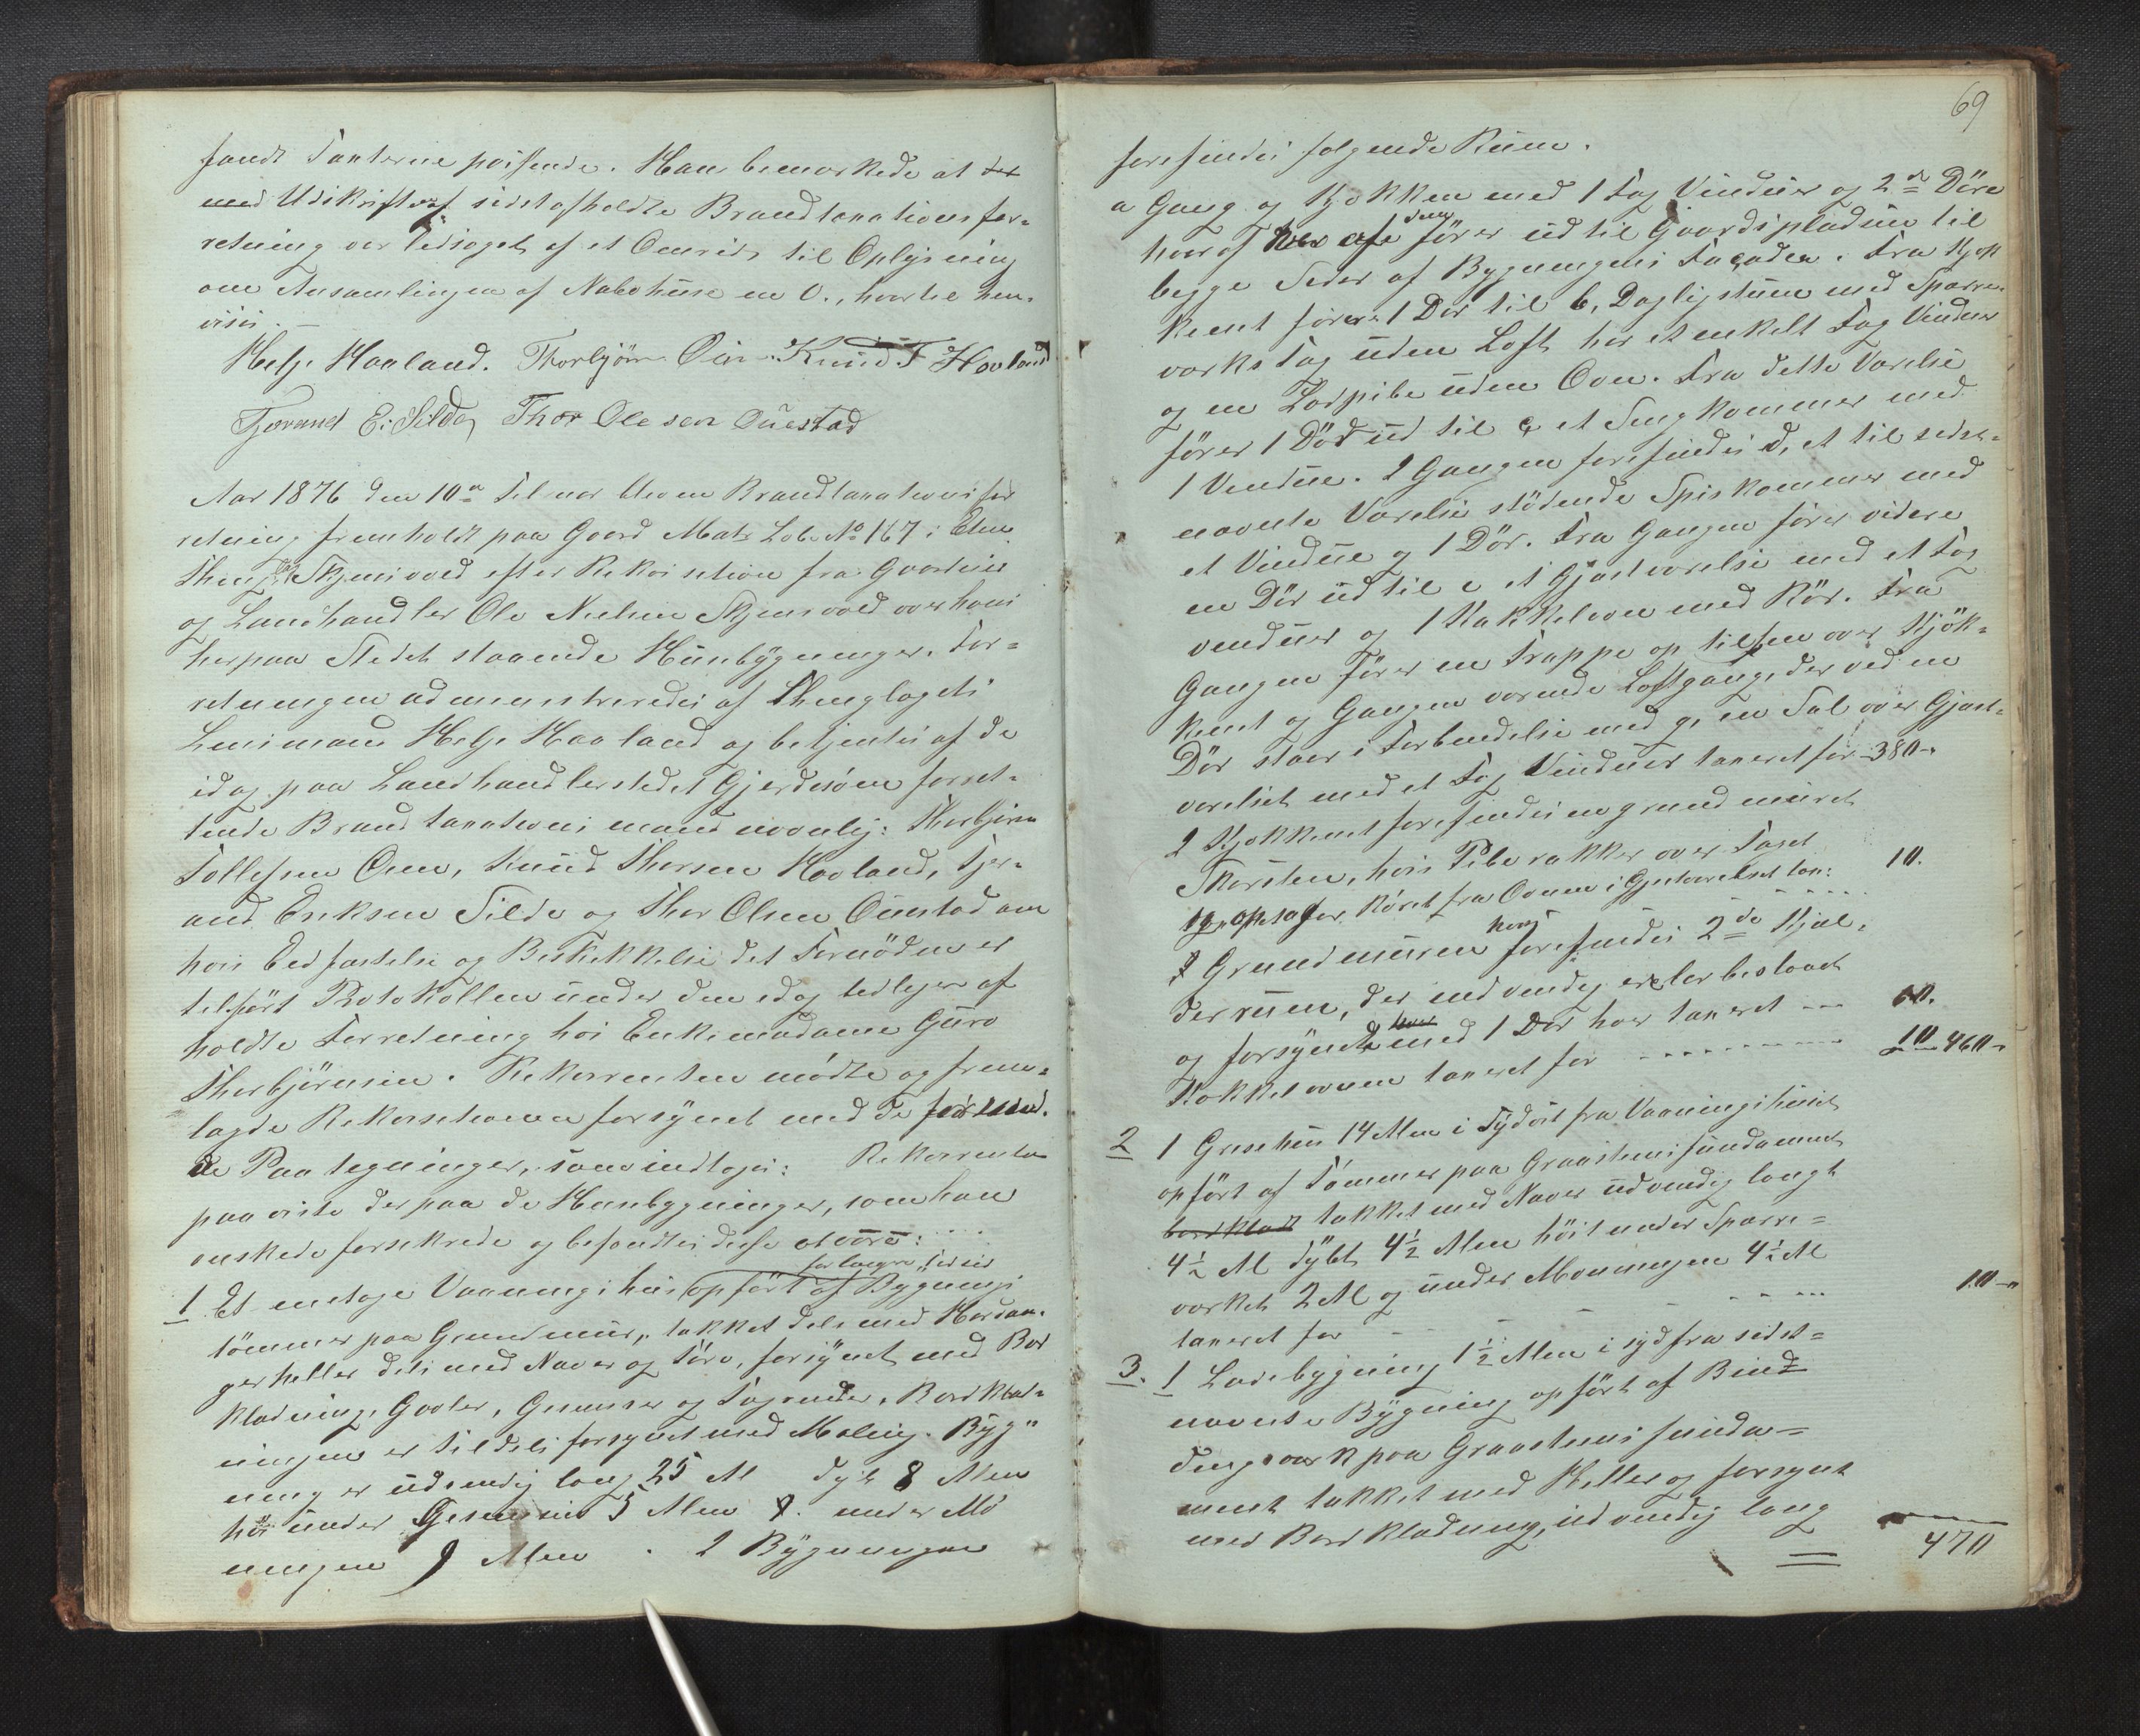 fandt Taxterne passende. Han bemærkede at det
med Udskrift af sidstafholdte Brandtaxationsfor-
retning var ledsaget af et Omrids til Oplysning
om Ansamlingen af Nabohuse m. v., hvortil hen-
vises. —
Helje Haaland. Thorbjörn Oen. Knud T Hovland
Tjerand E. Silde, Thor Olesen Öuestad
Aar 1876 den 10de Februar blev en Brandtaxationsfor
retning fremholdt paa Gaard Matr. Löbe No 167 i Etne
Thinglag Skjensvold efter Rekvisition fra Gaardeier
og Landhandler Ole Nielsen Skjensvold over hans
her paa Stedet staaende Huusbygninger. For-
retningen administreredes af Thinglagets
Lensmand Helje Haaland og betjentes af de
idag paa Landhandlerstedet Gjerdesöen forret-
tende Brandtaxationsmænd navnlig: Thorbjörn
Tollefsen Oen, Knud Thorsen Hovland, Tjer-
and Eriksen Silde og Thor Olsen Öuestad om
hvis Eedfæstelse og Beskikkelse det Fornödne er
tilfört Protokollen under den idag tidligere af
holdte Forretning hos Enkemadame Guro
Thorbjörnsen. Rekvirenten mödte og frem-
lagde Rekvisitionen forsynet med de fornöd.
de Paategninger, som indtages: Rekvirenten
paaviste derpaa de Huusbygninger, som han
önskede forsikrede og befandtes disse at være:
for længere Tid siden
1 Et enetages Vaaningshus opfört af Bygnings
tömmer paa Grundmur, tækket dels med Hardan-
gerheller dels med Næver og Törv, forsynet med Bord
klædning, Gavler, Gesimser og Tagrender. Bordklæd-
ningen er tildels forsynet med Maling. Byg-
ning er udvendig lang 25 Al dyb 8 Alen
höi under Gesimsen 5 Alen &. under Mö
ningen 9 Alen. I Bygningen
69
forefindes fölgende Rum.
a Gang og Kjökken med 1 Fag Vinduer og 2de Döre
hvoraf den förer ud til Gaardspladsen til
begge Sider af Bygningens Façader. Fra Kjök
kenet förer 1 Dör til b, Dagligstuen med Sparre-
værks Tag uden Loft har et enkelt Fag Vinduer
og en Lædpibe uden Ovn. Fra dette Værelse
förer 1 Dör ud til c et Sengkammer med
1 Vindue. I Gangen forefindes d, et til sidst-
nævnte Værelse stödende Spiskammer med
et Vindue og 1 Dör. Fra Gangen förer videre
en Dör ud til e et Gjæsteværelse med et Fag
Vinduer og 1 Kakkelovn med Rör. Fra
Gangen förer en Trappe op til f en over Kjök-
kenet og Gangen værende Loftgang, der ved en
Dör staar i Forbindelse med g, en Sal over Gjæst-
værelset med et Fag Vinduer taxeret for — 380 -
I Kjökkenet forefindes en grundmuret
Skorsten, hvis Pibe rækker over Taget
og optager Röret fra Ovnen i Gjæsteværelset tax: 10.
I Grundmuren forefindes 2de Kjæl-
derrum, der indvendig ere lerbeslaaet
og forsynede med 1 Dör hver taxeret — 60.
Kakkelovnen taxeret for - - - - 10 460 -
2 1 Grisehus 14 Alen i Sydost fra Vaaningshuset
opfört af Tömmer paa Graastensfundament
bordklædt tækket med Næver udvendig langt
4½ Al dybt 4½ Alen höit under Sparre-
værket 2 Al og under Mönningen 4½ Al
taxeret for - - - - 10 -
3. 1 Ladebygning 1½ Alen i syd fra sidst-
nævnte Bygning opfört af Bind-
ingsværk paa Graastensfunda-
ment tækket med Heller og forsynet
med Bordklædning, udvendig lang
470